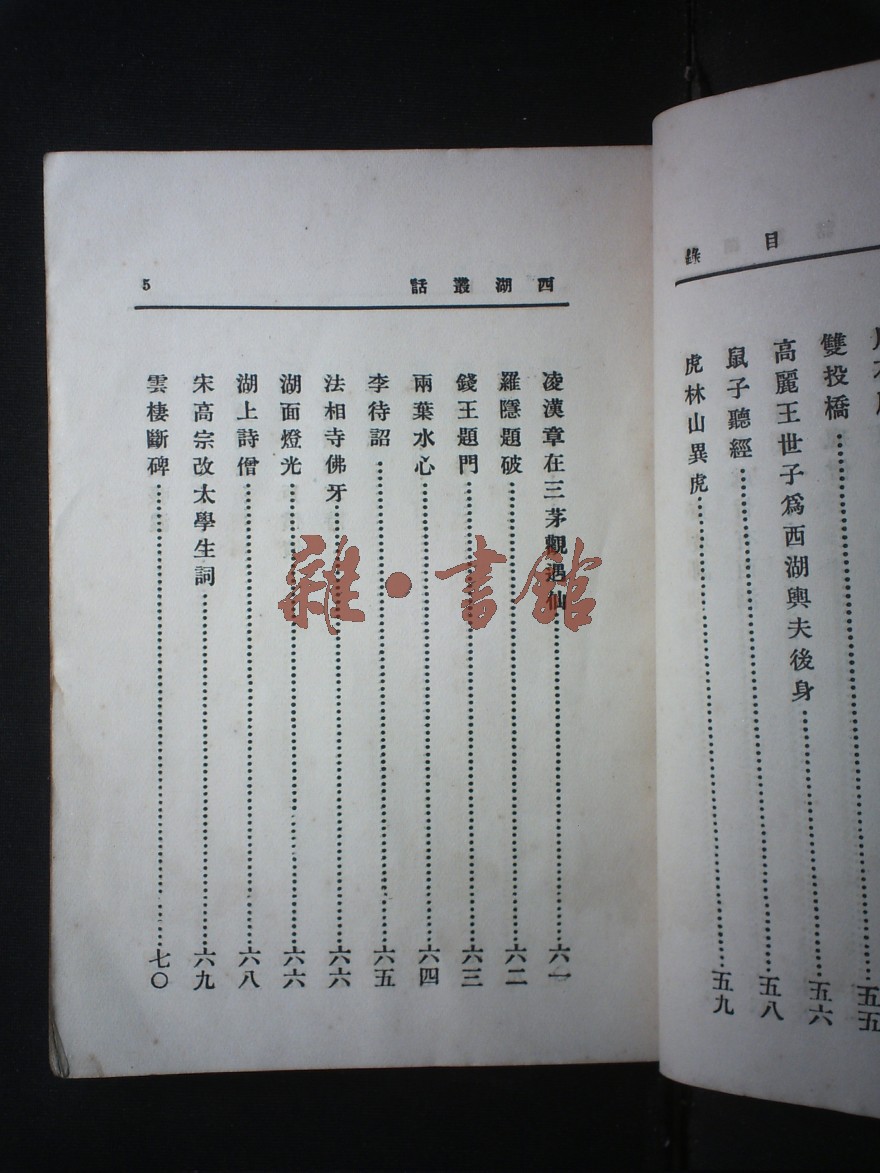 目錄
雙投橋……五五
高麗王世子爲西湖輿夫後身……五六
鼠子聽經……五八
虎林山異虎……五九
西湖叢話 5
凌漢章在三茅觀遇仙……六一
羅隱題破……六二
錢王題門……六三
兩葉水心……六四
李待詔……六五
法相寺佛牙……六六
湖面燈光……六六
湖上詩僧……六八
宋高宗改太學生詞……六九
雲棲斷碑……七〇
雜·書館